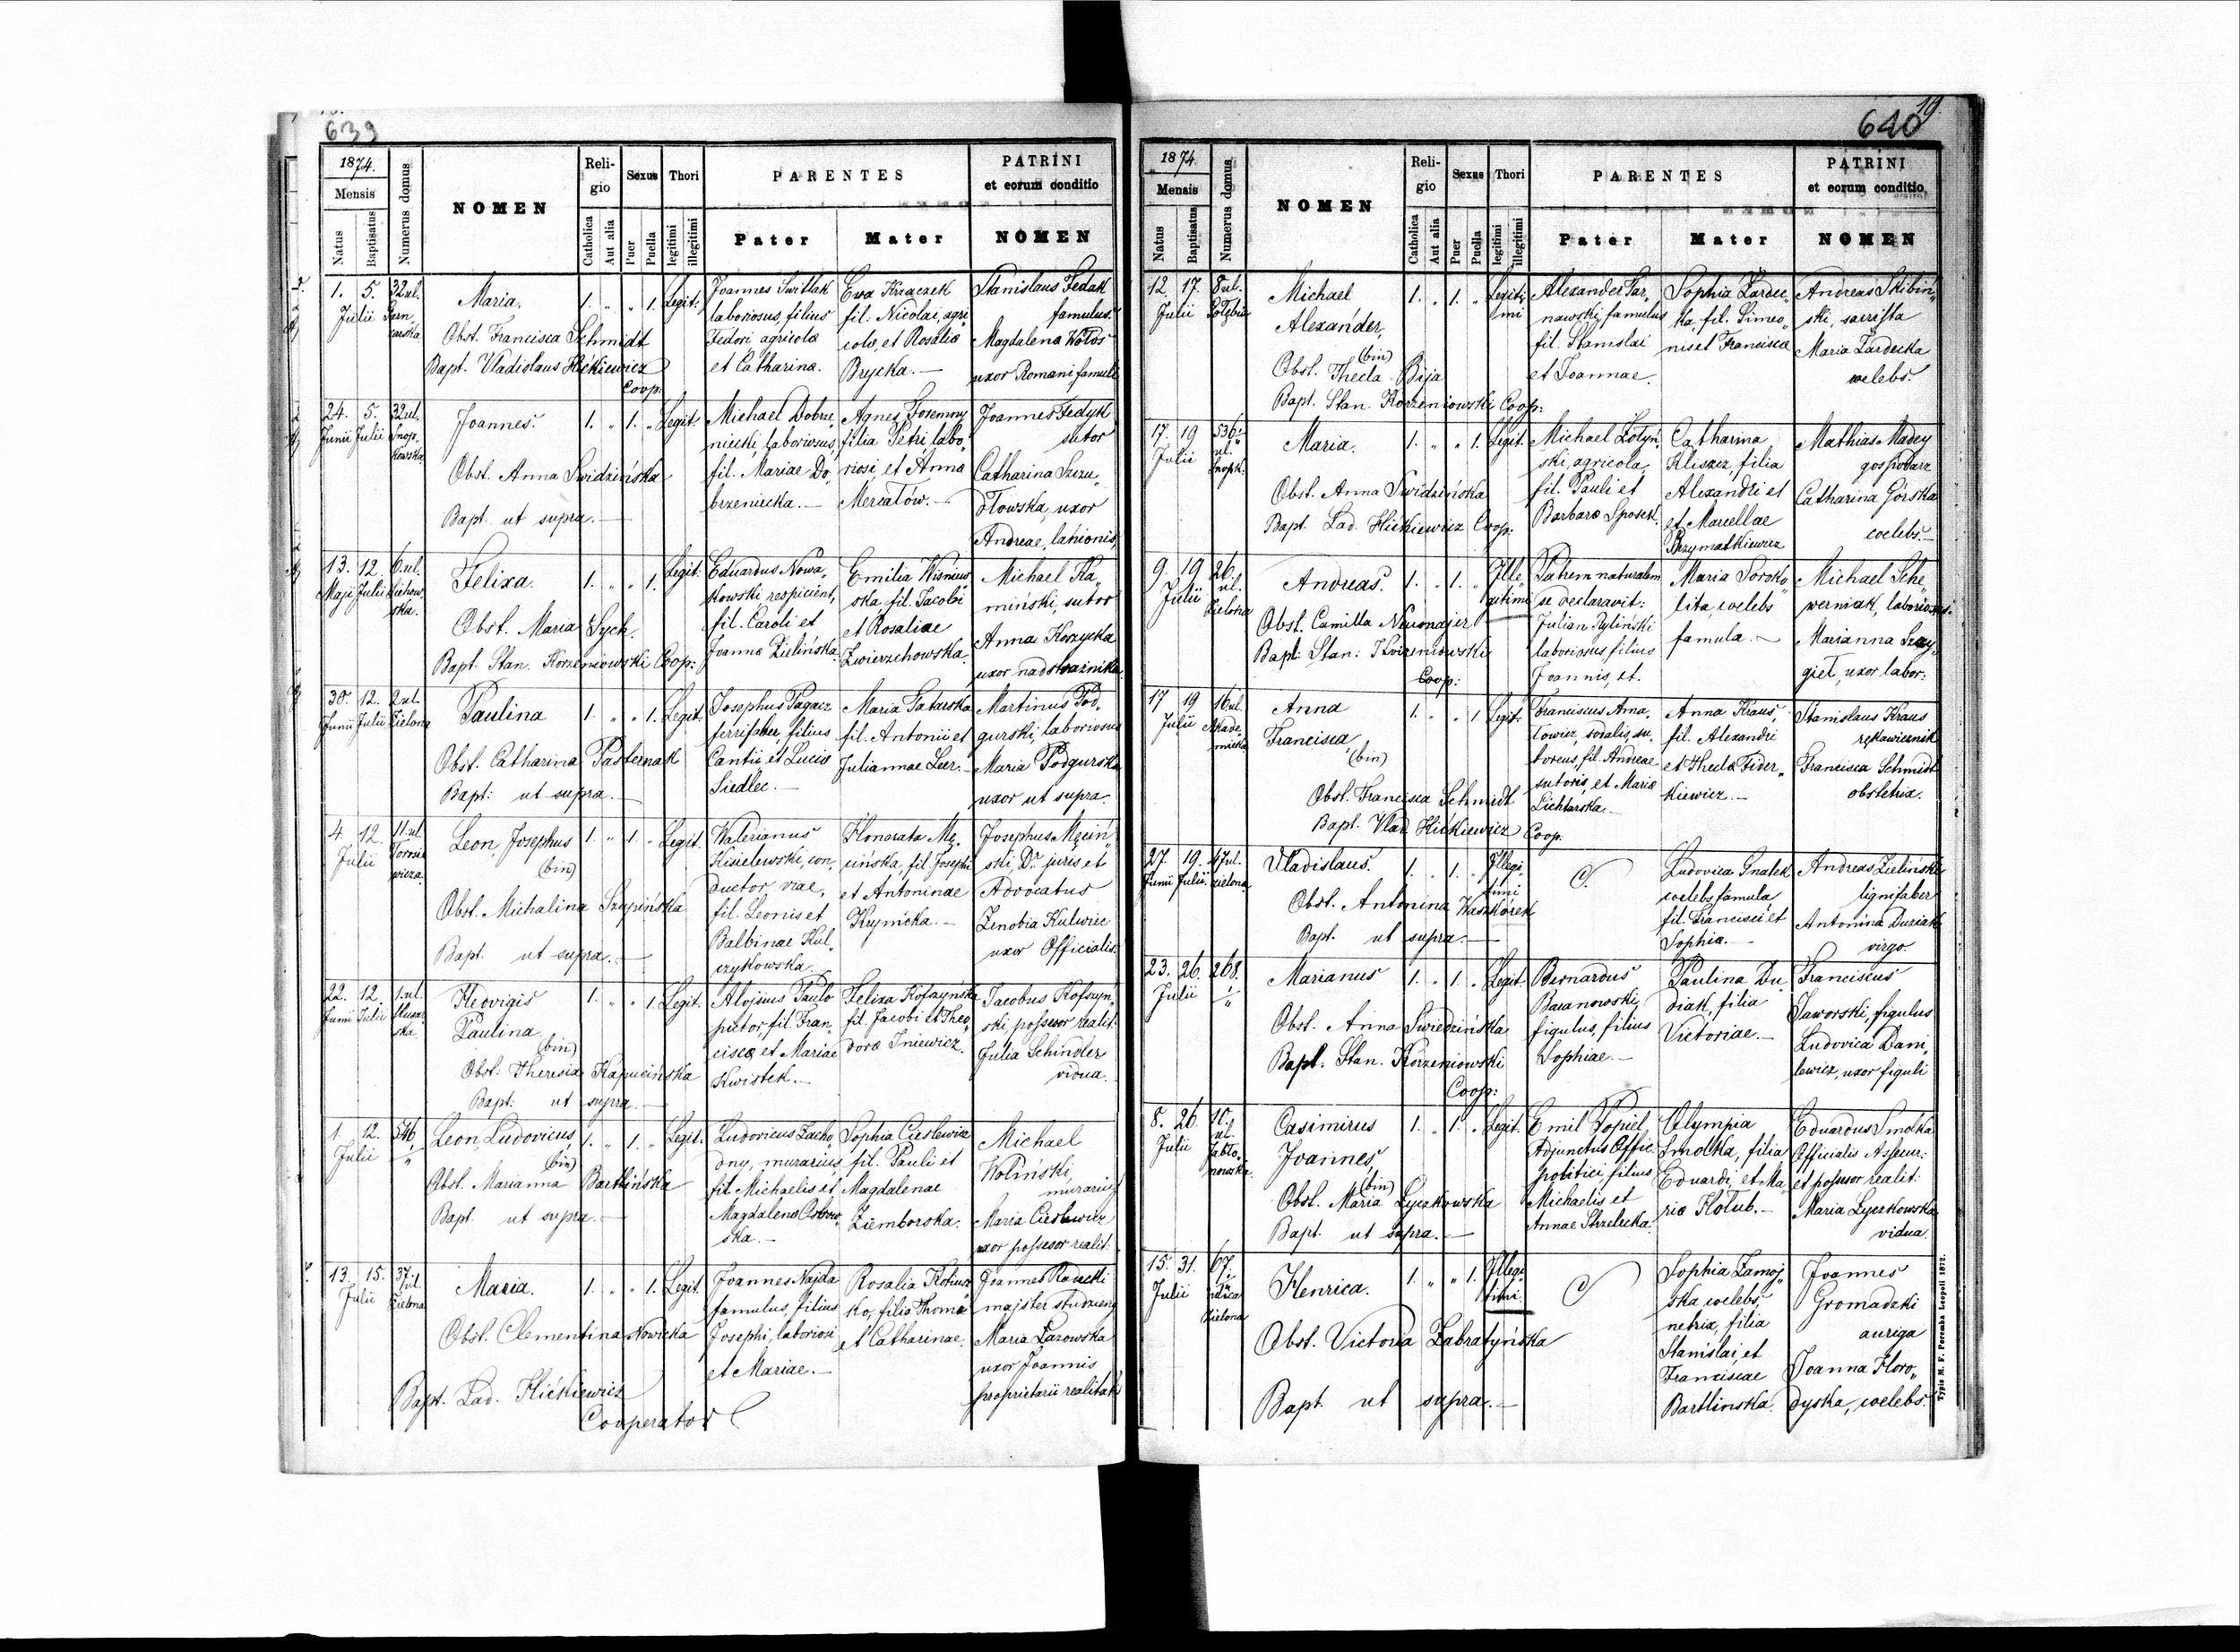 639
1874.
Mensis
Natus
Baptisatus
Numerus domus
NOMEN
Religio
Catholica
Aut alia
Sexus
Puer
Puella
Thori
legitimi
illegitimi
PARENTES
Pater
Mater
PATRINI
et eorum conditio
NOMEN
1. 5. 32 ul.
Julii
Maria.
1. " " 1. Legit:
Obst. Francisca Schmidt
Bapt. Vladislaus Hićkiewicz
Coop:
Joannes Switlek
laboriosus, filius
Fedori agricolæ
et Catharinæ.
Eva Kraczek
fil: Nicolai, agri
colæ, et Rosaliæ
Brycka.—
Stanislaus Fedak
famulus.
Magdalena Wołos
uxor Romani famuli
24. 5. 32 ul.
Junii Julii Snop,
kowska.
Joannes.
1. " 1. " Legit.
Obst. Anna Swidzińska
Bapt. ut supra.—
Michael Dobrze,
niecki, laboriosus,
fil. Mariae Do,
brzeniecka.—
Agnes
filia Petri labo,
riosi, et Anna
Mercałów.—
Joannes Fedyk
sutor
Catharina Szczu,
dłowska, uxor
Andreae, lanionis,
13. 12. 6. ul.
Maji Julii
ska.
Felixa.
1. " " 1. Legit:
Obst. Maria Sych.
Bapt. Stan. Korzeniowski Coop:
Eduardus Nowa,
kowski respicient,
fil. Caroli et
Joannæ Zielińska.
Emilia Wisniew
ska, fil. Jacobi
et Rosaliae
Zwierzchowska.
Michael Ka,
miński, sutor
Anna Korzycka
uxor nadstrażnika
30. 12. 2 ul.
Junii Julii Zielona
Paulina
1. " " 1. Legit:
Obst. Catharina Pasternak
Bapt: ut supra.—
Josephus Pagacz
ferrifaber, filius
Cantii, et Luciæ
Siedlec.—
Maria Tatarska
fil. Antonii et
Juliannae Leer.—
Martinus Pod,
gurski, laboriosus
Maria Podgurska
uxor ut supra.
4. 12. 11. ul.
Julii Torosie
wicza.
Leon, Josephus
(bin)
1. " 1. " Legit.
Obst. Michalina Szupińska
Bapt. ut supra.—
Walerianus
Kisielewski, con,
ductor viae,
fil. Leonis et
Balbinae Kul,
czykowska.
Honorata Mę,
cińska, fil. Josephi
et Antoninae
Krynicka.—
Josephus Męciń
ski, Dr. juris et
Advocatus
Zenobia Kulwiec
uxor Officialis.
22. 12. 1. ul.
Junii Julii
ska.
Hedvigis
Paulina
(bin)
1. " " 1. Legit.
Obst: Theresia Kapucińska
Bapt: ut supra.—
Alojsius Paulo
pictor, fil. Fran,
ciscæ et Mariae
Kwistek.—
Felixa Kofszyńska
fil. Jacobi et Theo,
doræ Iniewicz.
Jacobus Kofszyń,
ski, possesor realit.
Julia Schindler
vidua.
1. 12. 546.
Julii "
Leon, Ludovicus,
(bin)
1. " 1. " Legit.
Obst. Marianna Bartlińska
Bapt. ut supra.—
Ludovicus Zacho,
dny, murarius,
fil. Michaelis et
Magdalenæ Ostrow,
ska.—
Sophia Cieslewicz
fil. Pauli et
Magdalenae
Ziemborska.
Michael
Woliński,
murarius
Maria Cieslewicz
uxor possesor realit:
13. 15. 37. ul.
Julii Zielona
Maria.
1. " " 1. Legit.
Obst. Clementina Nowicka
Bapt. Lad. Hićkiewicz
Cooperator
Joannes Najda
famulus, filius
Josephi, laboriosi
et Mariae.—
Rosalia
ko, filia Thomæ
et Catharinae.
Joannes Radecki
majster studzieny
Maria Łazowska
uxor Joannis
proprietarii realitatis
19.
640
1874.
Mensis
Natus
Baptisatus
Numerus domus
NOMEN
Religio
Catholica
Aut alia
Sexus
Puer
Puella
Thori
legitimi
illegitimi
PARENTES
Pater
Mater
PATRINI
et eorum conditio
NOMEN
12. 17. 8 ul.
Julii
Michael
Alexander,
(bin)
1. " 1. " Legiti
mi
Obst. Thecla Bija
Bapt. Stan. Korzeniowski Coop:
Alexander Tar,
nawski, famulus
fil. Stanislai
et Joannae.
Sophia Zardec,
ka, fil. Simeo,
nis et Franciscæ
Andreas Skibiń,
ski, sacrista
Maria Zardecka
coelebs.
17. 19 536.
Julii ul.
Snopk:
Maria.
1. " " 1. Legit.
Obst. Anna Swidzińska
Bapt. Lad. Hićkiewicz Coop:
Michael Żołyń,
ski, agricola,
fil. Pauli et
Barbaræ Sposek.
Catharina
Kliszcz, filia
Alexandri et
et Marcellae
Brzymatkiewicz
Mathias Madey
gospodarz
Catharina Górska
coelebs.—
9. 19 26.
Julii ul.
Zielona
Andreas.
1. " 1. " Ille
gitimi
Obst. Camilla Neuonajer
Bapt: Stan: Korzeniowski
Coop:
Patrem naturalem
se declaravit:
Julian Pyliński
laboriosus filius
Joannis, et.
Maria Soroko,
lita, coelebs
famula.—
Michael Sche,
werniak, laboriosus.
Marianna Szay,
giel, uxor labor:
17 19 16 ul.
Julii Akade,
micka
Anna
Francisca,
(bin)
1. " " 1 Legit.
Obst. Francisca Schmidt
Bapt. Vlad. Hićkiewicz Coop.
Franciscus Ama,
towicz, sodalis, su,
toreus, fil. Andreae
sutoris, et Mariæ
Lichtarska.—
Anna Kraus,
fil. Alexandri
et Theclæ Fider,
kiewicz.—
Stanislaus Kraus
rękawicznik
Francisca Schmidt
obstetrix.
27. 19. 47 ul.
Junii Julii. zielona
Vladislaus.
1. " 1. " Illegi,
timi
Obst. Antonina Waszkórek
Bapt. ut supra.—
Ludovica Gnatek
coelebs famula
fil. Francisci et
Sophia.—
Andreas Zieliński
lignifaber
Antonina Duziak
virgo
23. 26. 268.
Julii "
Marianus
1. " 1. " Legit.
Obst. Anna Swiedzińska
Bapt. Stan. Korzeniowski
Coop:
Bernardus
Baranowski,
figulus, filius
Sophiae.—
Paulina Du,
diak, filia
Victoriae.—
Franciscus
Jaworski, figulus
Ludovica Dani,
lewicz, uxor figuli
8. 26. 10.
Julii ul.
Jabło,
nowska.
Casimirus
Joannes,
(bin)
1. " 1. " Legit.
Obst. Maria Lyczkowska
Bapt. ut supra.—
Emil Popiel,
Adjunctus Offic.
politici, filius
Michaelis et
Annae Strzelecka.
Olympia
Smolka, filia
Eduardi, et Ma,
riæ Hołub.—
Eduardus Smolka
Officialis Assecur:
et possesor realit:
Maria Lyczkowska
vidua.
15. 31. 67.
Julii
ulica
Zielona
Henrica.
1. " " 1. Illegi
timi.
Obst. Victoria Zabratyńska
Bapt. ut supra.—
Sophia Zamoj,
ska coelebs,
netrix, filia
Stanislai, et
Franciscae
Bartlinska.
Joannes
Gromadzki
auriga
Joanna Horo,
dyska, coelebs.
Typis M. F. Poremba Leopoli 1872.